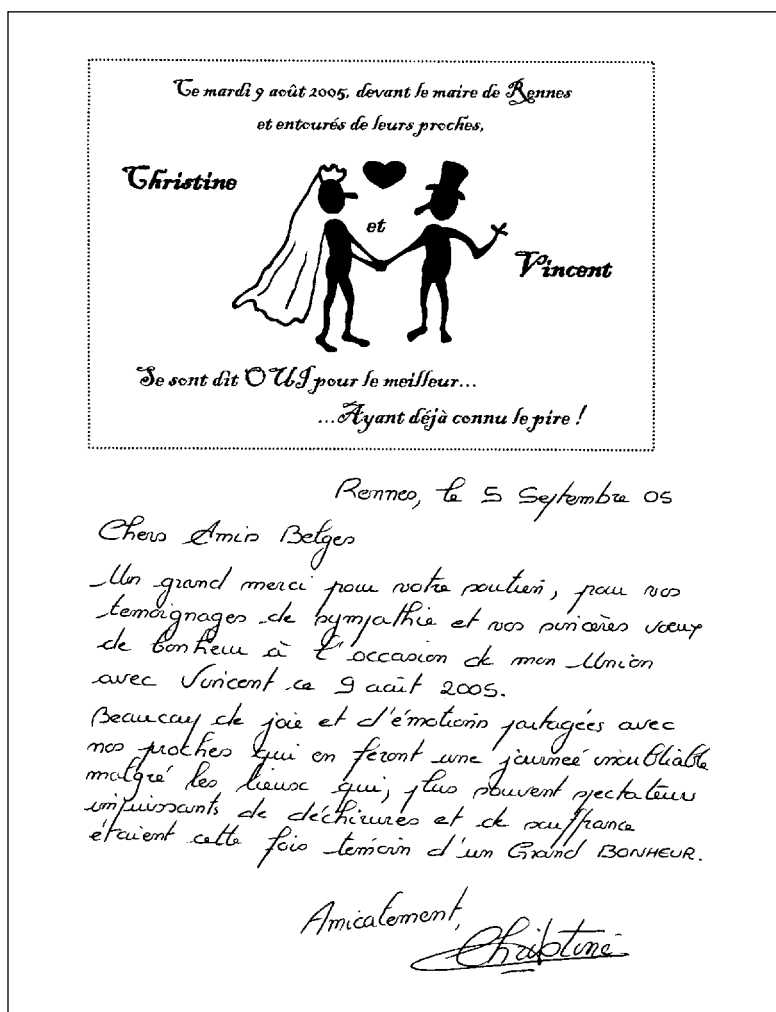 Ce mardi 9 août 2005, devant le maire de Rennes
et entourés de leurs proches,
Christine
et
Vincent
Se sont dit OUI pour le meilleur...
...Ayant déjà connu le pire !
Rennes, le 5 Septembre 05
Chers Amis Belges
Un grand merci pour votre soutien, pour vos
temoignages de sympathie et vos sincères vœux
de bonheur à l'occasion de mon Union
avec Vincent ce 9 août 2005.
Beaucoup de joie et d'émotions partagées avec
nos proches qui en feront une journeé inoubliable
malgré les lieux qui, plus souvent spectateurs
impuissants de déchirures et de souffrance
étaient cette fois temoin d'un Grand BONHEUR.
Amicalement,
Christine